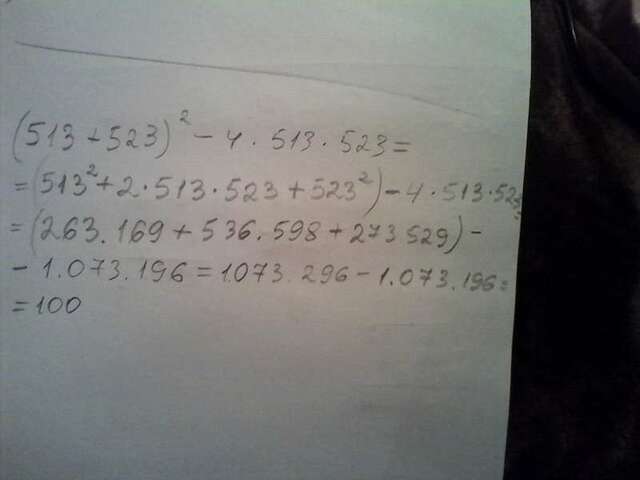 (513+523)² - 4·513·523=
=(513²+2·513·523+523²)-4·513·523
=(263.169+536.598+273529)-
- 1.073.196=1073.296-1.073.196=
=100